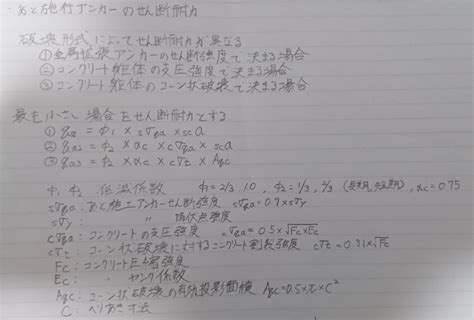 ・あと施行アンカーのせん断耐力
破壊形式によってせん断耐力が異なる
①金属拡張アンカーのせん断強度で決まる場合
②コンクリート躯体の支圧強度で決まる場合
③コンクリート躯体のコーン状破壊で決まる場合
最も小さい場合をせん断耐力とする
① qa1 = φ1 × sσqa × sca
② qa2 = φ2 × αc × cσqa × sca
③ qa3 = φ2 × αc × cσt × Aqc
φ1 φ2 低減係数 φ1=2/3, 1.0, φ2=1/3, 2/3 (長期, 短期), αc=0.75
sσqa:あと施工アンカーせん断強度 sσqa=0.7×sσy
sσy: 〃 降伏点強度
cσqa:コンクリートの支圧強度 cσqa=0.5×√Fc×Ec
cσt:コーン状破壊に対するコンクリート割裂強度 cσt=0.31×√Fc
Fc:コンクリート圧縮強度
Ec: 〃 ヤング係数
Aqc:コーン状破壊の有効投影面積 Aqc=0.5×π×C²
C へりあき寸法